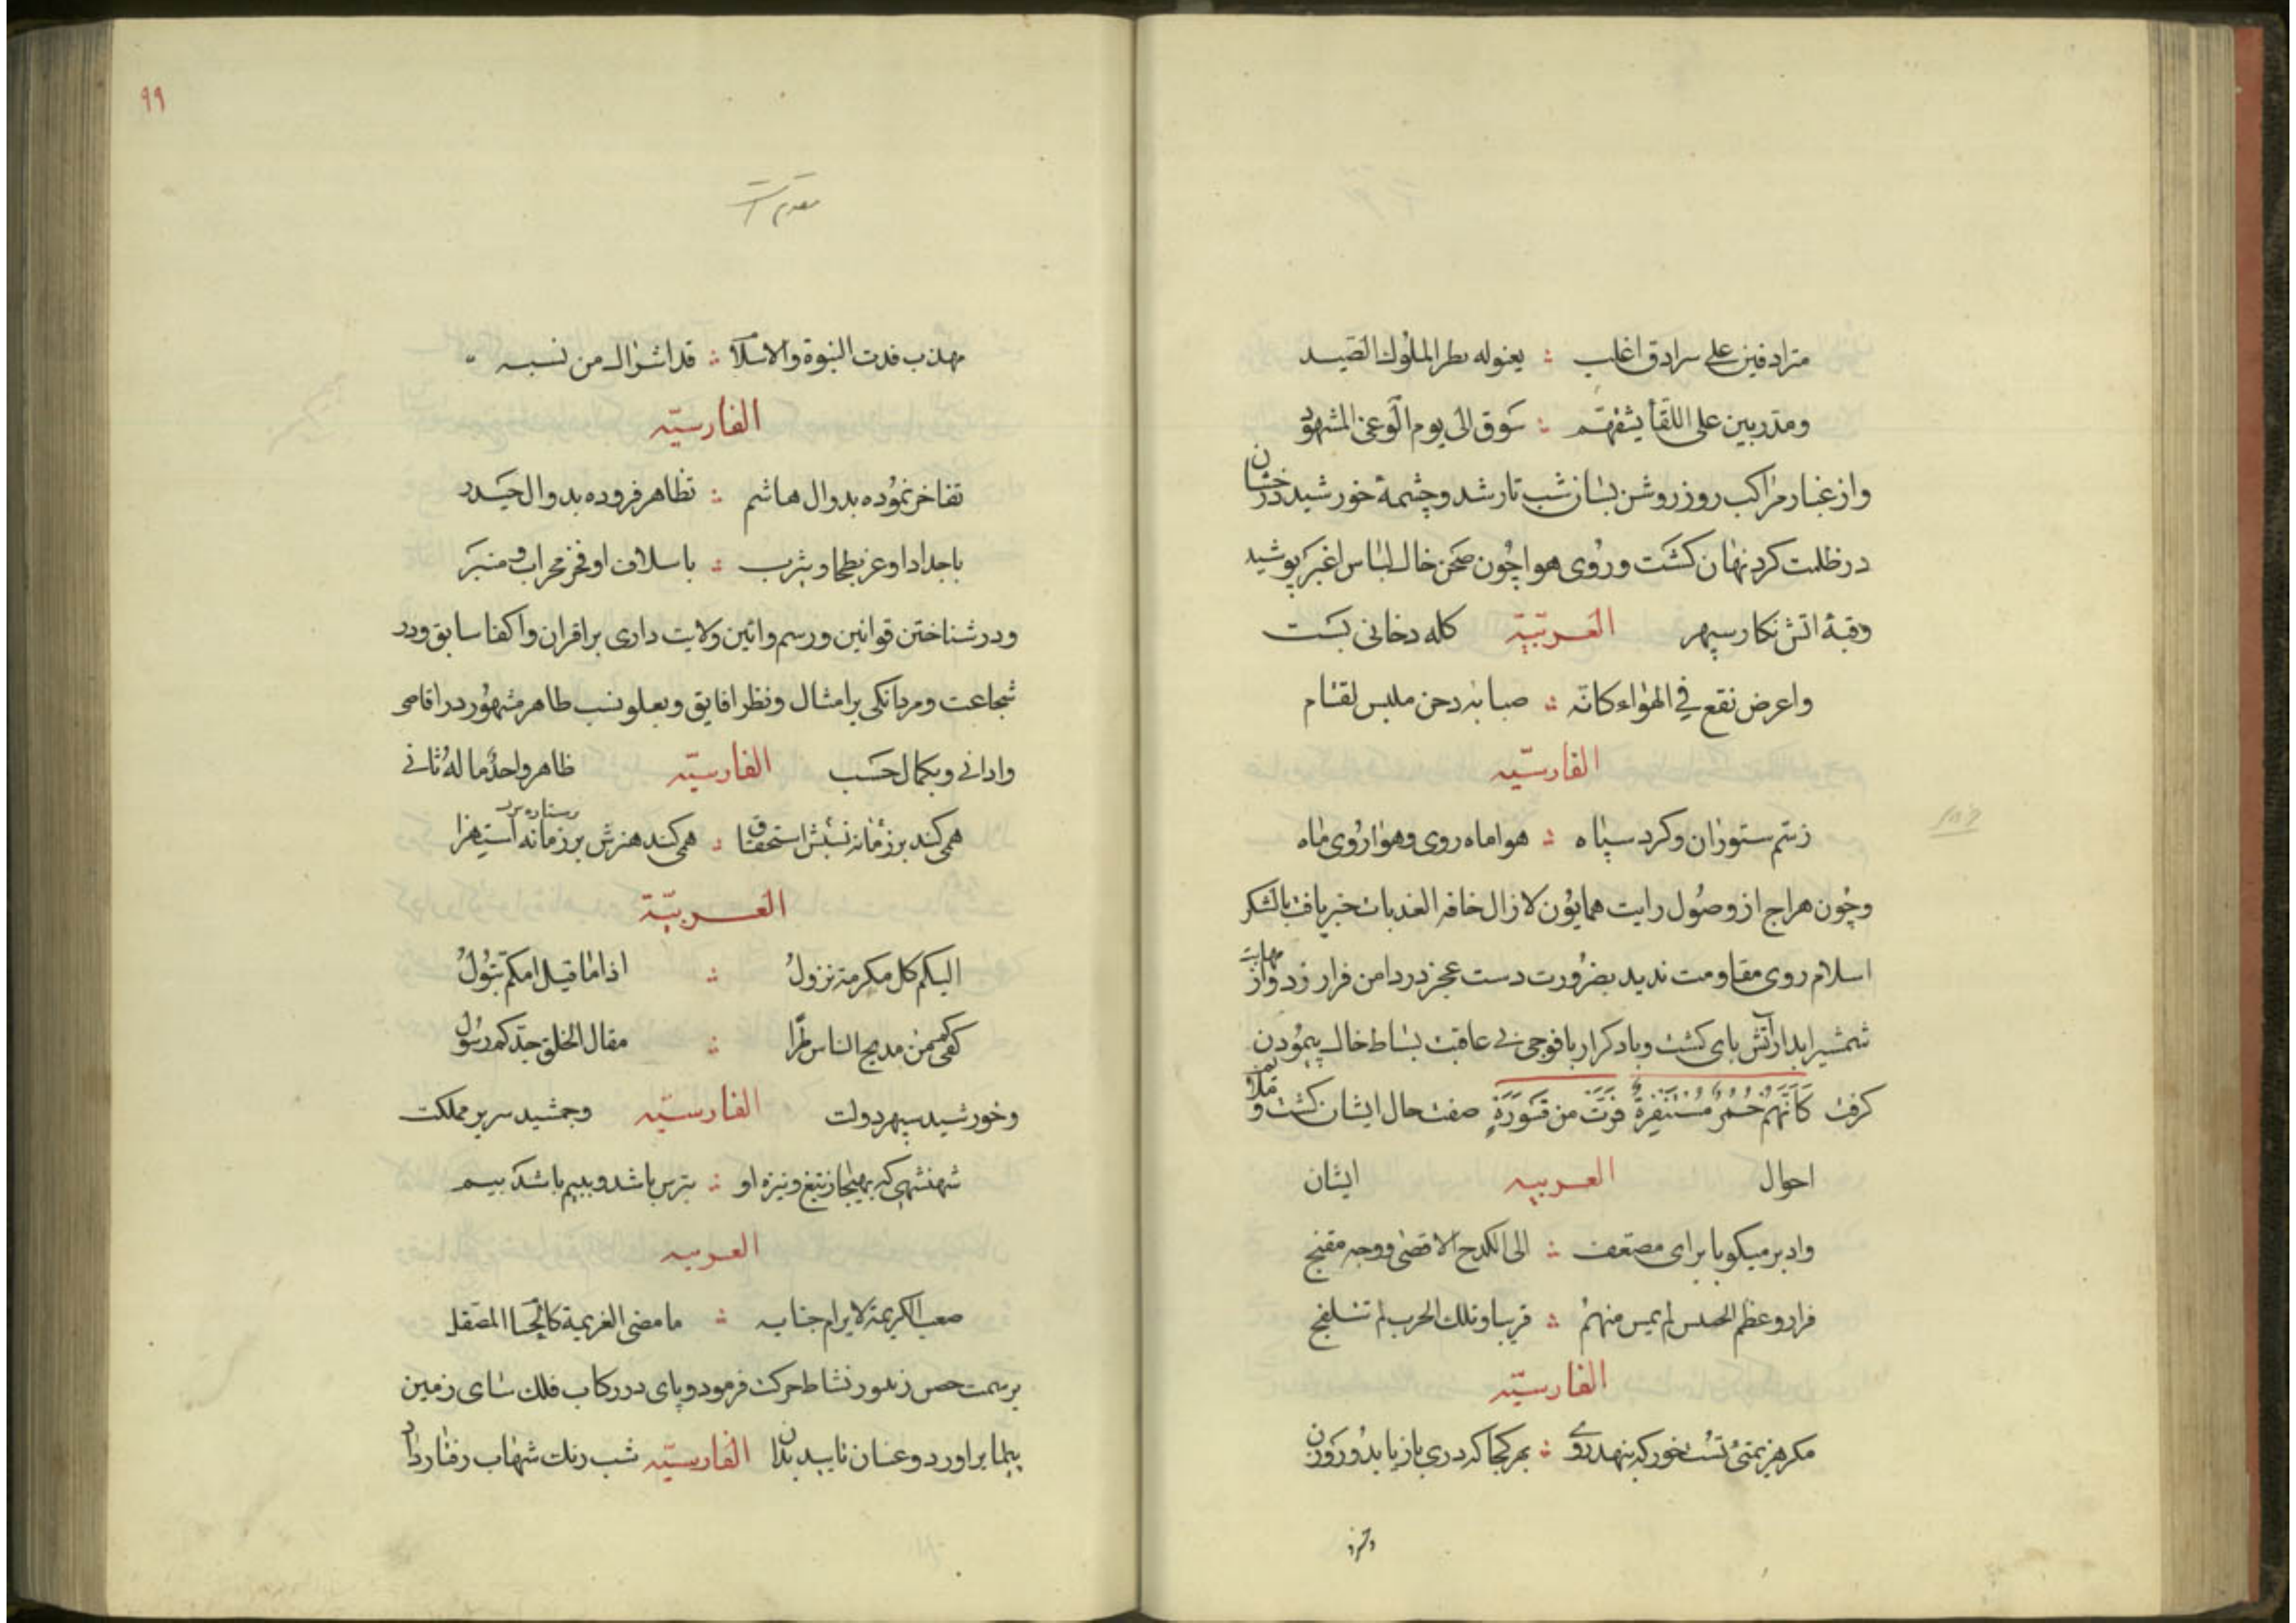 مترادفین علی سرادق اغلب ؞ یعنوله الملوك الصید
ومتدربین علی اللقاء ؞ شوق الی یوم الوغی المشهود
واز غبار مراکب روز روشن بسان شب تار شد وچشمهٔ خورشید درخشان
در ظلمت کرد نهان کشت وروی هوا چون صحن خاك لباس اغبر پوشید
وقبهٔ اتش نکار سپهر العربیّة کله دخانی بست
واعرض نقع فی الهواء کانّه ؞ دجن ملبس لقتام
الفارسیّه
زسم ستوران وکرد سپاه ؞ هوا ماه روی وهوا روی ماه
وچون هراج از وصول رایت همایون لازال خافق العذبات خبر یافت بالشکر
اسلام روی مقاومت ندید بضرورت دست عجز در دامن فرار زد واز مهابت
شمشیر ابدار آتش بای کشت وباد کردار بافوجی بی عاقبت بساط خاك پیمودن
کرفت کَاَنَّهُمْ حُمُرٌ مُسْتَنْفِرَةٌ فَرَّتْ مِن قَسْوَرَةٍ صفت حال ایشان کشت و
احوال العربیه ایشان
وادبر ؞ الی الکدح الاقصی ووجه مقبح
؞ قریبا وتلك الحرب لم
الفارسیّه
مکر هزیمتی تست خور که ننهد روی ؞ بهر کجا که دری باز یابد وروزن
وخرد
٩٩
مهذب النبوة والاسلام ؞ من نسبه
الفارسیّه
تفاخر نموده بدو ال هاشم ؞ تظاهر فزوده بدو ال حیدر
باجداد او عز بطحا ویثرب ؞ باسلاف او فخر محراب ومنبر
ودر شناختن قوانین ورسم وائین ولایت داری بر اقران واکفا سابق ودر
شجاعت ومردانکی بر امثال ونظرا فایق وبعلو نسب طاهر مشهور در اقاصی
وادانی وبکمال حسب الفارسیّه ظاهر واحدٌ ماله ثانی
همی کند بر زمانه نسبش استحقاق ؞ همی کند هنرش بر زمانه استهزا
العربیّة
الیکم کل مکرمة تزولُ ؞ اذا ما قیل امکم بتولُ
کفیکم من مدیح الناس طرّا ؞ مقال الخلق جدّکم رسول
وخورشید سپهر دولت الفارسیّه وجمشید سریر مملکت
شهنشهی که بهیجا زتیغ ونیزه او ؞ بترس باشد وبیم باشد بیم
العربیه
صعب الکریهة لا یرام جنابه ؞ ماضی العزیمة کالحسام المصقل
بر سمت حصن نشاط حرکت فرمود وپای در رکاب فلك سای زمین
پیما براورد وعنان تایید بدان الفارسیّه شب رنك شهاب رفتار داد